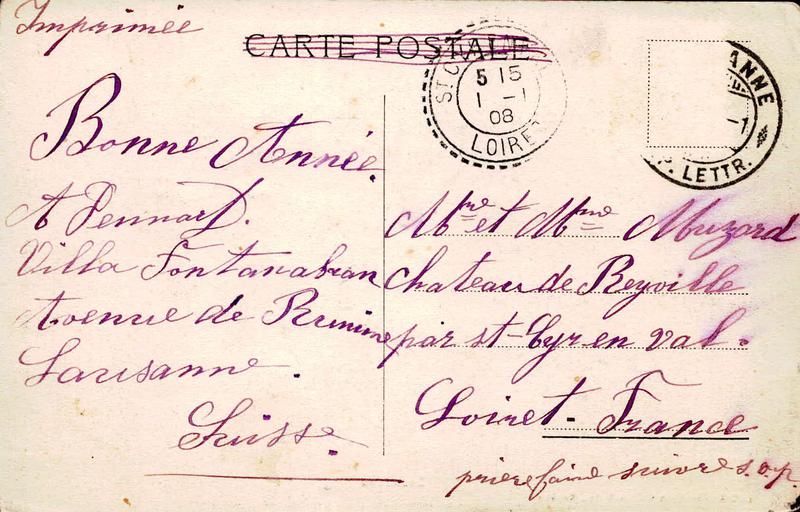 Imprimée
CARTE POSTALE
5 15
1 - 1
08
LOIRET
ANNE
LETTR.
Bonne Année.
A Pennard.
Villa Fontanabran
Avenue de Rumine
Lausanne.
Suisse.
Mre et Mme Muzard
Chateau de Reyville
par st-Cyr en Val.
Loiret - France
prière faire suivre s.v.p.